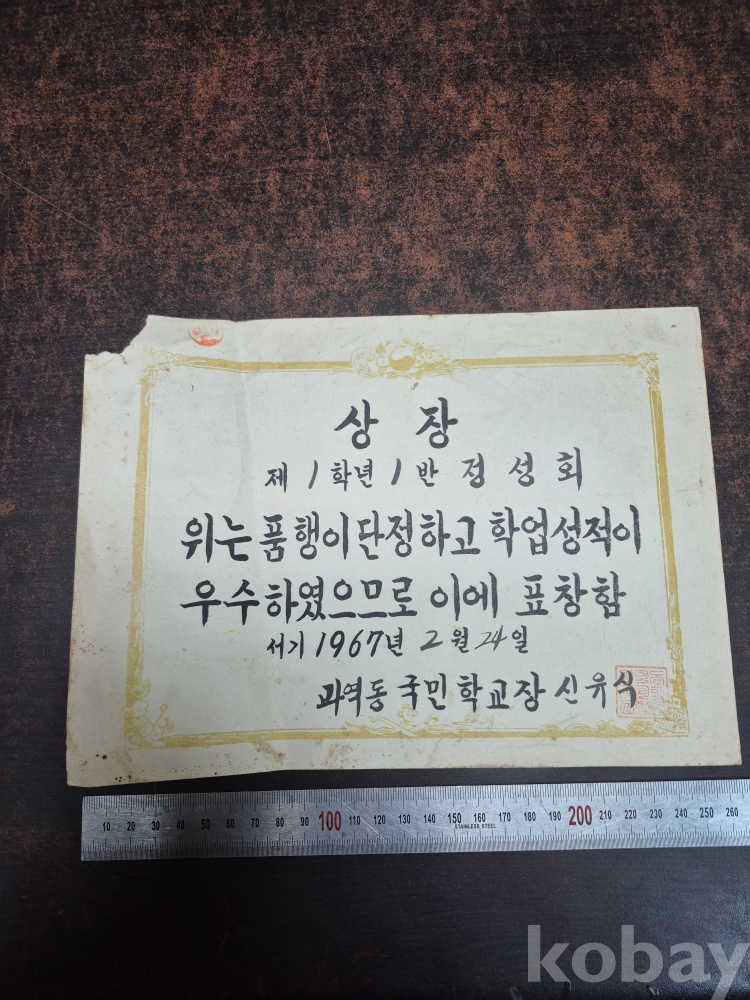 상장
제1학년1반 정성회
위는 품행이 단정하고 학업성적이
우수하였으므로 이에 표창함
서기 1967년 2월 24일
과역동 국민학교장 신유식
10 20 30 40 50 60 70 80 90 100 110 120 130 140 150 160 170 180 190 200 210 220 230 240 250 260
STAINLESS STEEL
kobay